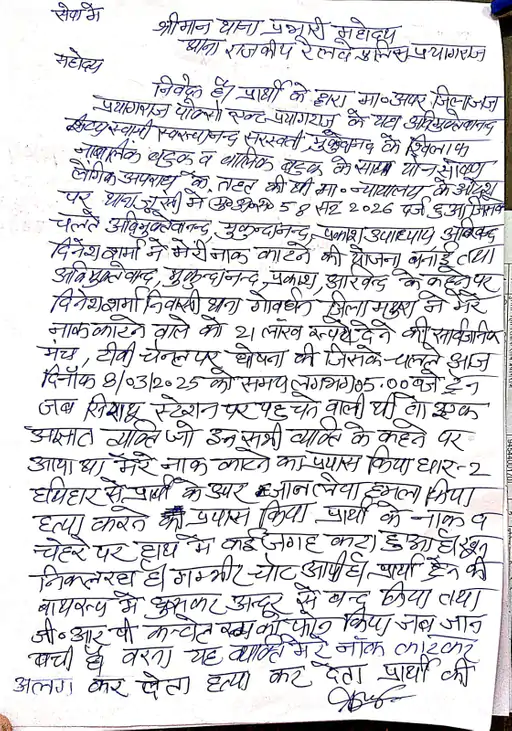 सेवा में
श्रीमान थाना प्रभारी महोदय
थाना राजकीय रेलवे पुलिस प्रयागराज
महोदय
निवेदन है प्रार्थी के द्वारा मा० अपर जिला जज
प्रयागराज पॉक्सो एक्ट प्रयागराज के यहाँ अविमुक्तेश्वरानंद
शिष्य स्वामी स्वरूपानन्द सरस्वती, मुकुन्दानंद के खिलाफ
नाबालिक बटुक व बालिक बटुक के साथ यौन शोषण
लैंगिक अपराध के तहत की थी मा० न्यायालय के आदेश
पर थाना झूंसी में 58 सन 2026 दर्ज हुआ जिसके
चलते अविमुक्तेश्वरानंद, मुकुन्दानंद, प्रकाश उपाध्याय, अरविन्द
दिनेश शर्मा ने मेरी नाक काटने की योजना बनाई तथा
अविमुक्तेश्वरानंद, मुकुन्दानन्द, प्रकाश, अरविन्द के कहने पर
दिनेश शर्मा निवासी थाना गोवर्धन जिला मथुरा ने मेरे
नाक काटने वाले को 21 लाख रूपये देने की सार्वजनिक
मंच, टीवी चैनल पर घोषना की जिसके चलते आज
दिनाँक 8/03/2025 को समय लगभग 05:00 बजे ट्रेन
जब सिराथू स्टेशन पर पहुचने वाली थी तो एक
अज्ञात व्यक्ति जो इन सभी व्यक्ति के कहने पर
आया था मेरे नाक काटने का प्रयास किया धार-2
हथियार से प्रार्थी के उपर जानलेवा हमला किया
हत्या करने का प्रयास किया प्रार्थी के नाक व
चेहरे पर हाथ में कई जगह कटा हुआ है खून
निकल रहा है। गम्भीर चोट आयी है। प्रार्थी ट्रेन की
बाथरूम में घुसकर अन्दर से बन्द किया तथा
जी०आर०पी कन्ट्रोल रूम को फोन किया जब जान
बची है वरना यह व्यक्ति मेरे नाँक काटकर
अलग कर देता हत्या कर देता प्रार्थी की